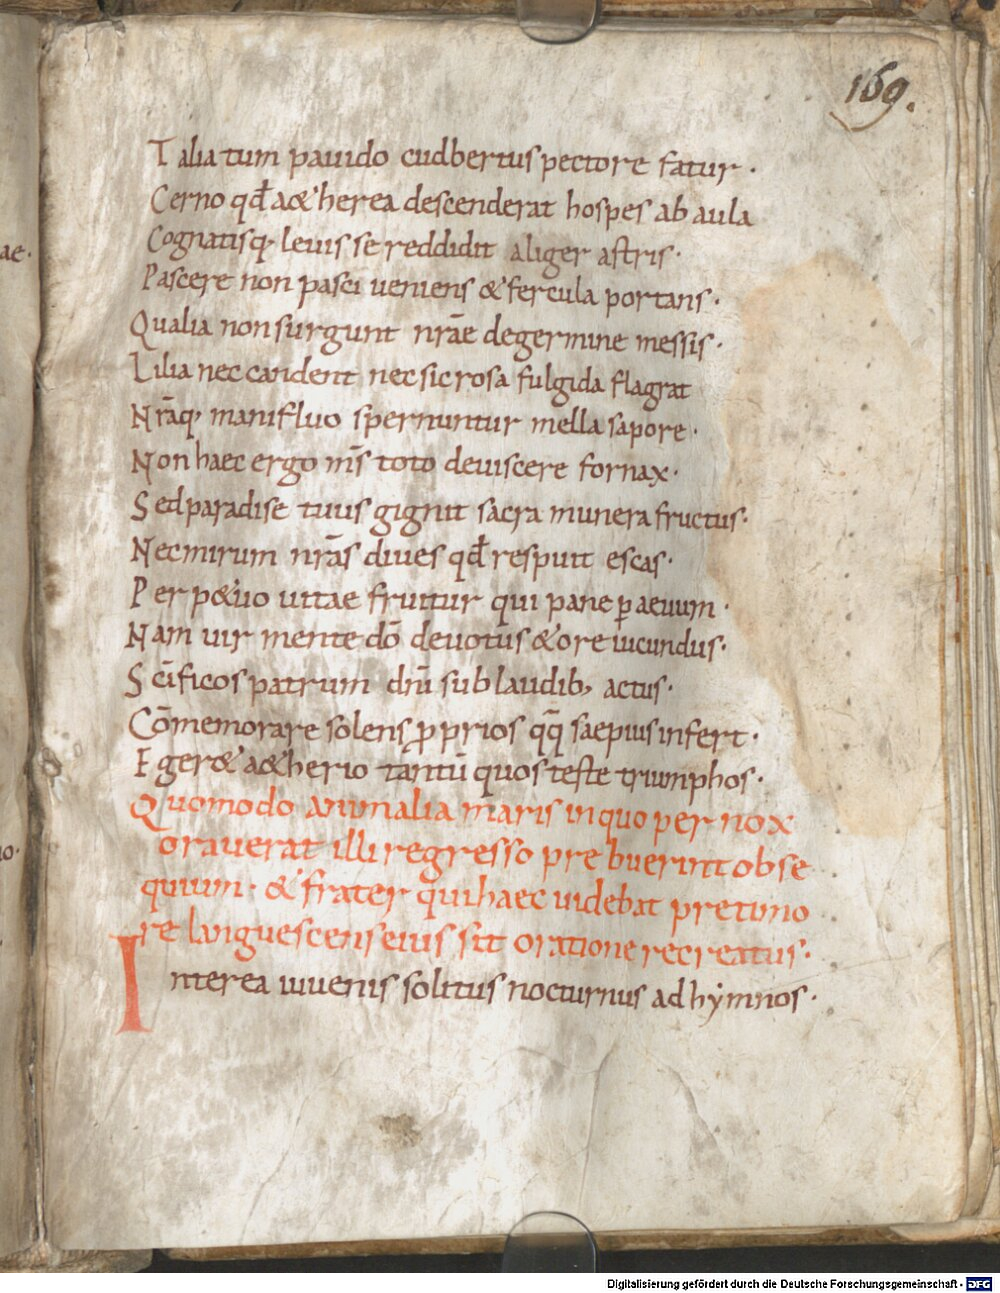 169.
Talia tum pauido cudbertus pectore fatur ·
Cerno qđ a&herea descenderat hospes ab aula
Cognatisq· leuis se reddidit aliger astris ·
Pascere non pasci ueniens & fercula portans ·
Qualia non surgunt nrāe de germine messis ·
Lilia nec candent nec sic rosa fulgida flagrat
Nrāq, manifluo spernuntur mella sapore ·
Non haec ergo nr̄s toto deuiscere fornax ·
Sed paradise tuus gignit sacra munera fructus ·
Nec mirum nrās diues qđ respuit escas ·
Per p&uo uitae fruitur qui pane ꝑ aeuum ·
Nam uir mente dō deuotus & ore iucundus ·
Scīficos patrum dn̄i sub laudib, actus ·
Cōmemorare solens ꝓprios qq̄ saepius infert ·
Eger& a&herio tantū quos teste triumphos ·
Quomodo animalia maris in quo per nox
orauerat illi regresso prebuerint obse
quium · & frater qui haec uidebat pretimo
re languescens eius sit oratione recreatus ·
Interea iuuenis solitus nocturnus ad hẏmnos ·
ae ·
io ·
Digitalisierung gefördert durch die Deutsche Forschungsgemeinschaft - DFG